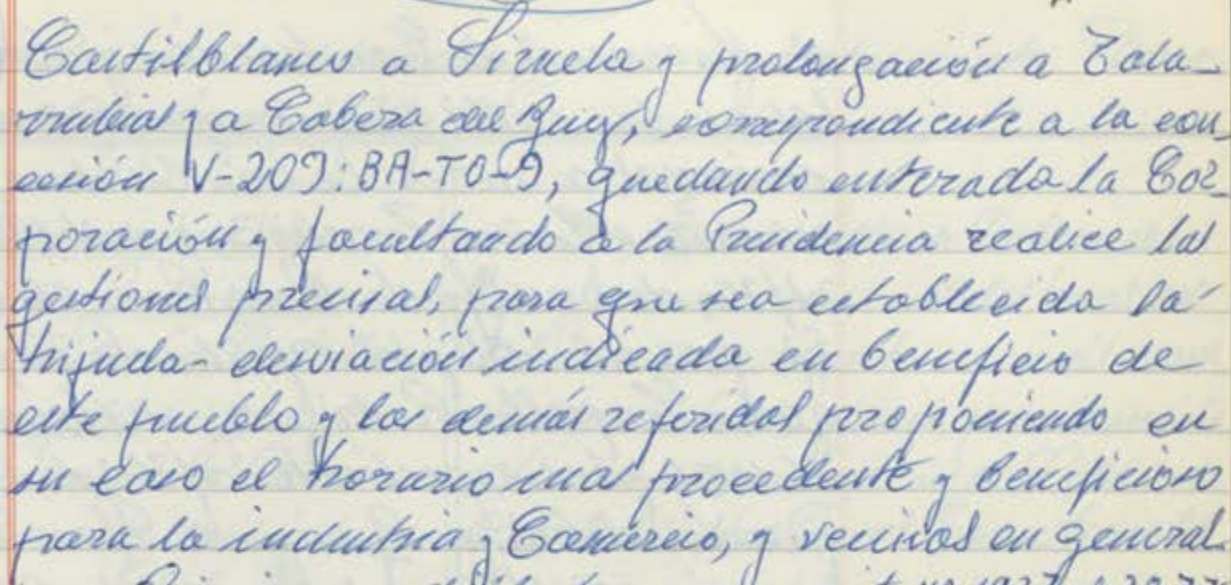 Castilblanco a Siruela y prolongación a Tala-
rrubias y a Cabeza del Buey, correspondiente a la con
cesión V-209: BA-TO-9, quedando enterada la Cor
poración y facultando a la Presidencia realice las
gestiones precisas, para que sea establecida la
hijuela-desviación indicada en beneficio de
este pueblo y los demás referidos proponiendo en
su caso el horario mas procedente y beneficioso
para la industria y Comercio, y vecinos en general